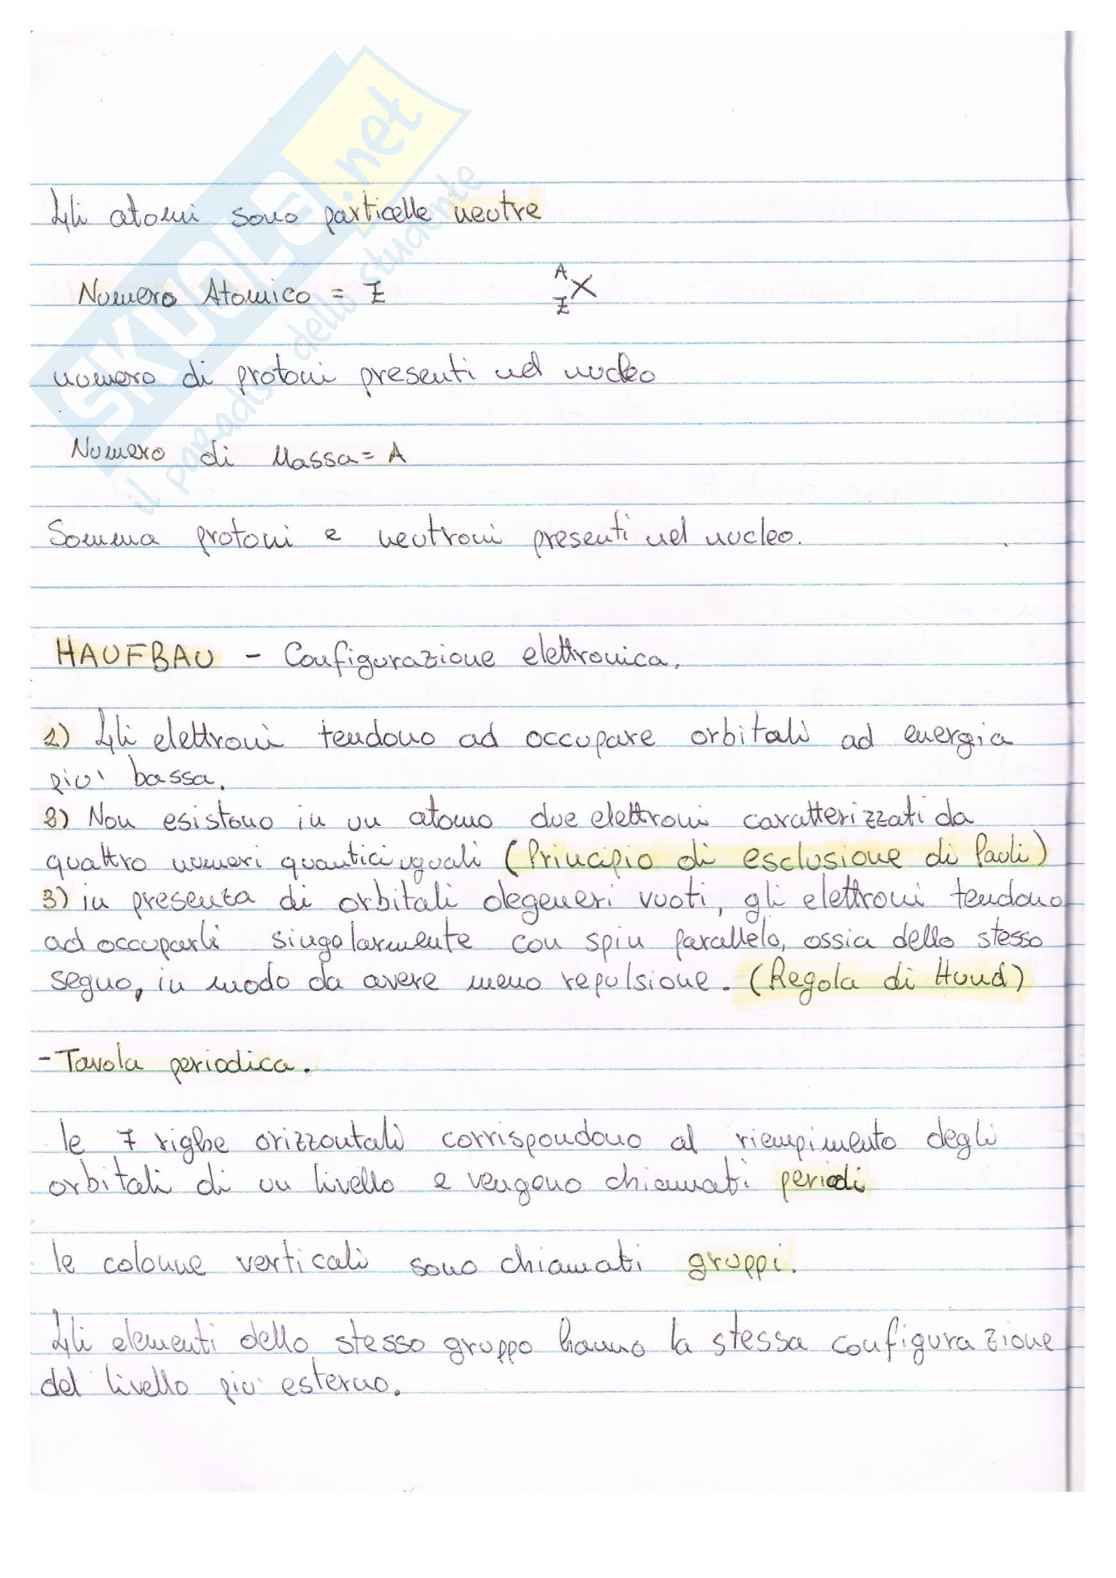 SKUOLA.net
il paradiso dello studente
Gli atomi sono particelle neutre
Numero Atomico = Z
A
Z X
numero di protoni presenti nel nucleo
Numero di Massa = A
Somma protoni e neutroni presenti nel nucleo.
HAUFBAU - Configurazione elettronica.
1) Gli elettroni tendono ad occupare orbitali ad energia
piu' bassa.
2) Non esistono in un atomo due elettroni caratterizzati da
quattro numeri quantici uguali (Principio di esclusione di Pauli)
3) in presenza di orbitali degeneri vuoti, gli elettroni tendono
ad occuparli singolarmente con spin parallelo, ossia dello stesso
segno, in modo da avere meno repulsione. (Regola di Hund)
- Tavola periodica.
le 7 righe orizzontali corrispondono al riempimento degli
orbitali di un livello e vengono chiamati periodi
le colonne verticali sono chiamati gruppi.
Gli elementi dello stesso gruppo hanno la stessa configurazione
del livello piu' esterno.